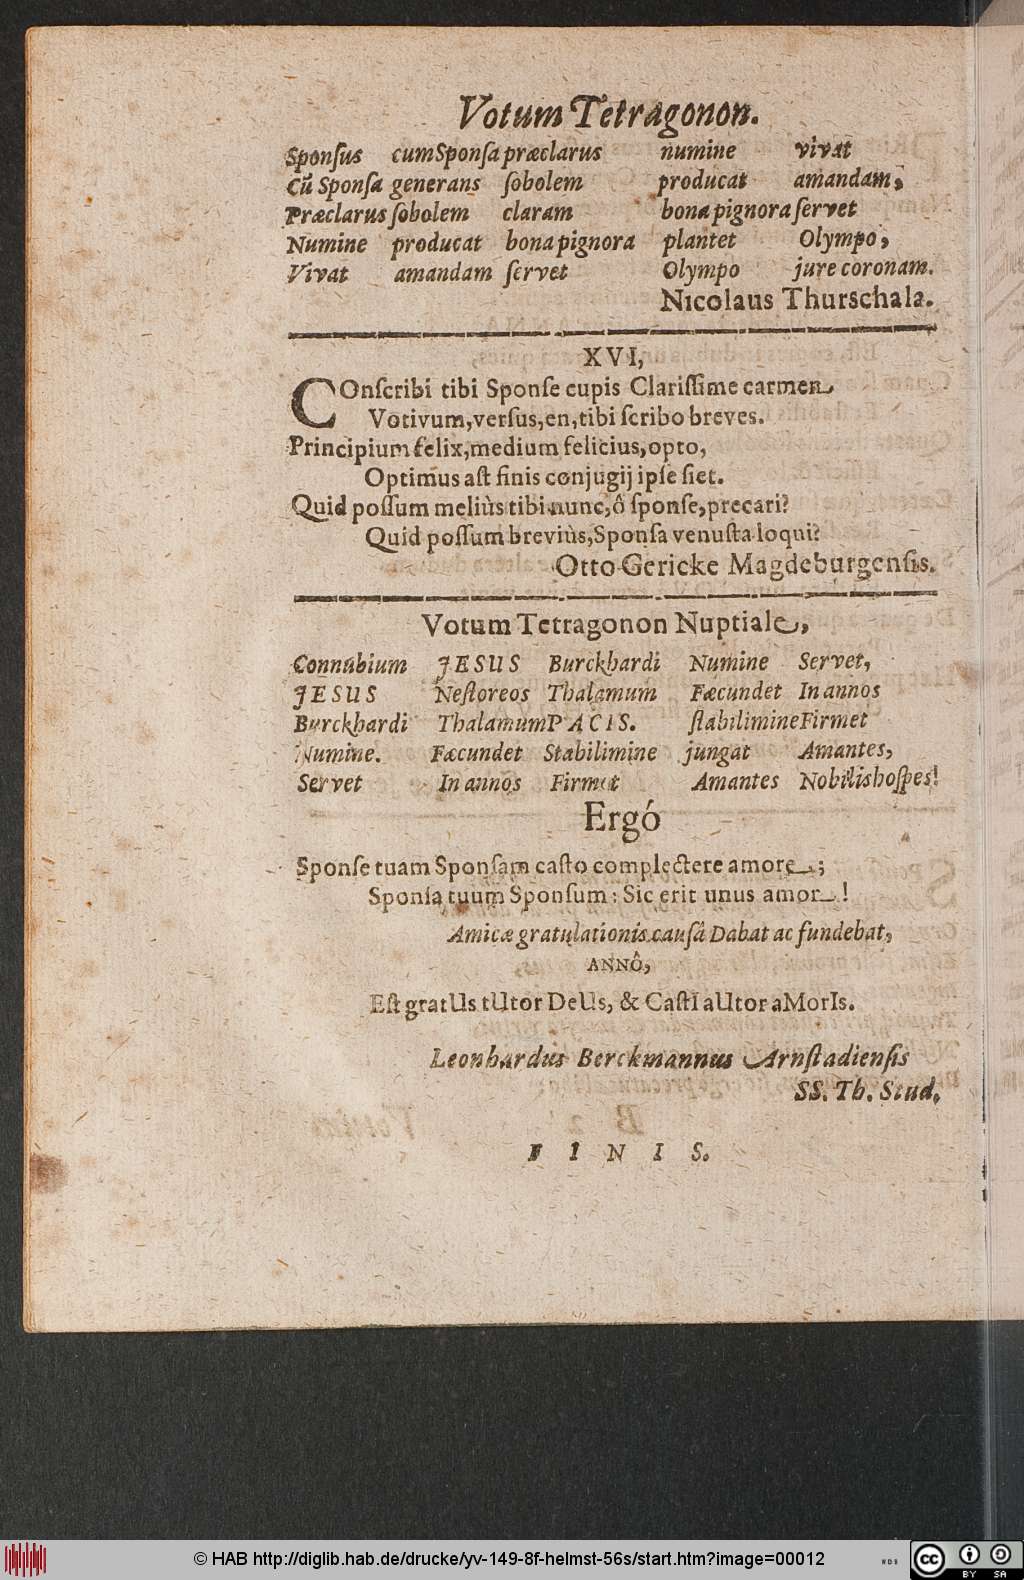 Votum Tetragonon.
Sponſus cum Sponſa præclarus numine vivat
Cū Sponſa generans ſobolem producat amandam,
Præclarus ſobolem claram bona pignora ſervet
Numine producat bona pignora plantet Olympo,
Vivat amandam ſervet Olympo jure coronam.
Nicolaus Thurschala.
XVI,
COnſcribi tibi Sponſe cupis Clariſſime carmen
Votivum, verſus, en, tibi ſcribo breves.
Principium felix, medium felicius, opto,
Optimus aſt finis conjugij ipſe ſiet.
Quid poſſum meliùs tibi nunc, ô ſponſe, precari?
Quid poſſum breviùs, Sponſa venuſta loqui?
Otto Gericke Magdeburgenſis.
Votum Tetragonon Nuptiale,
Connubium JESUS Burckhardi Numine Servet,
JESUS Neſtoreos Thalamum Fæcundet In annos
Burckhardi Thalamum PACIS. ſtabilimine Firmet
Numine. Fæcundet Stabilimine jungat Amantes,
Servet In annos Firmet Amantes Nobilis hoſpes!
Ergó
Sponſe tuam Sponſam caſto complectere amore;
Sponſa tuum Sponſum: Sic erit unus amor!
Amicæ gratulationis cauſâ Dabat ac fundebat,
ANNÔ,
Eſt gratUs tUtor DeUs, & CaſtI aUtor aMorIs.
Leonhardus Berckmannus Arnſtadienſis
SS. Th. Stud.
FINIS.
© HAB http://diglib.hab.de/drucke/yv-149-8f-helmst-56s/start.htm?image=00012
WDB
cc BY SA